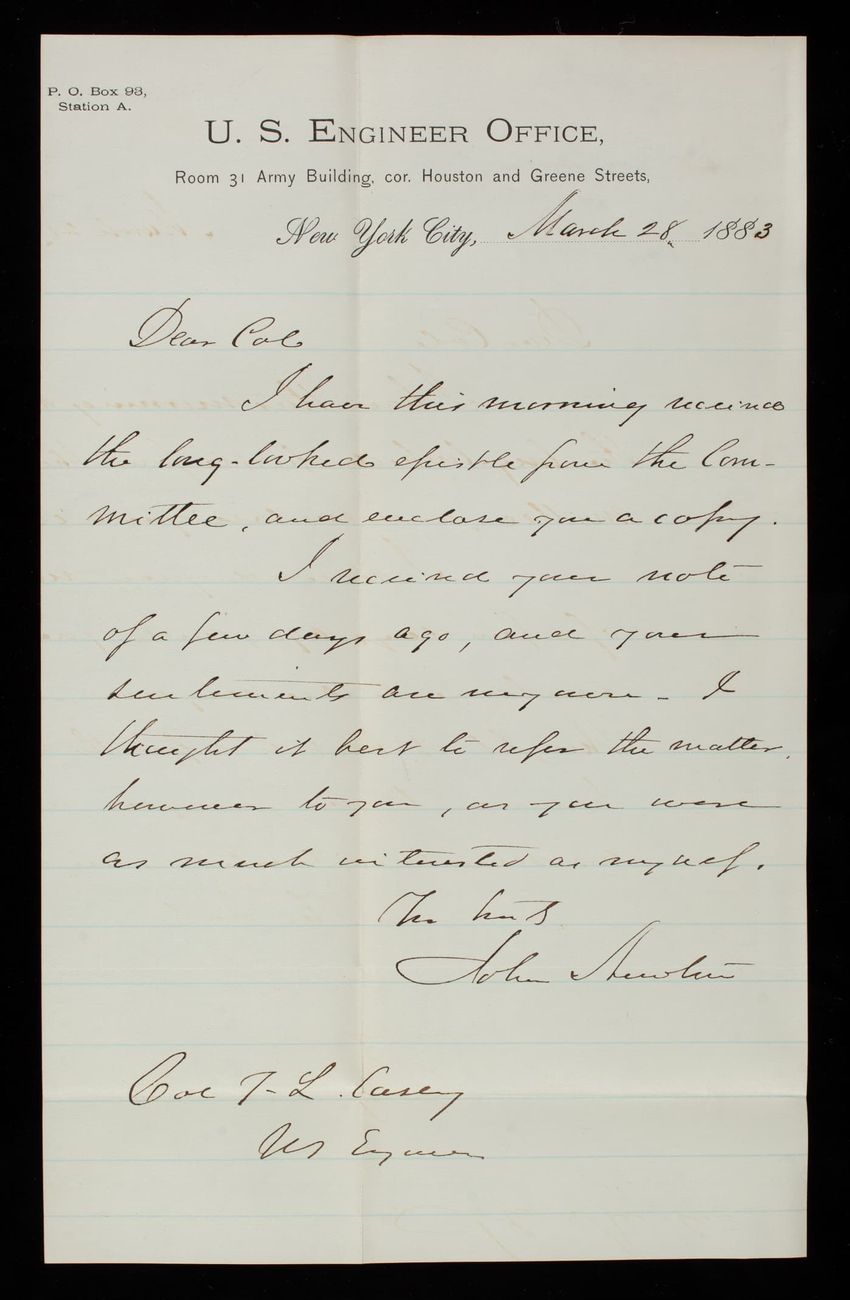 P. O. Box 93,
Station A.
U. S. Engineer Office,
Room 31 Army Building, cor. Houston and Greene Streets,
New York City, March 28, 1883
Dear Col
I have this morning received
the long-looked epistle from the Com-
mittee, and enclose you a copy.
I received your note
of a few days ago, and your
sentiments are my own - I
thought it best to refer the matter,
however to you, as you were
as much interested as myself.
John Newton
Col T. L. Casey
US Engineer